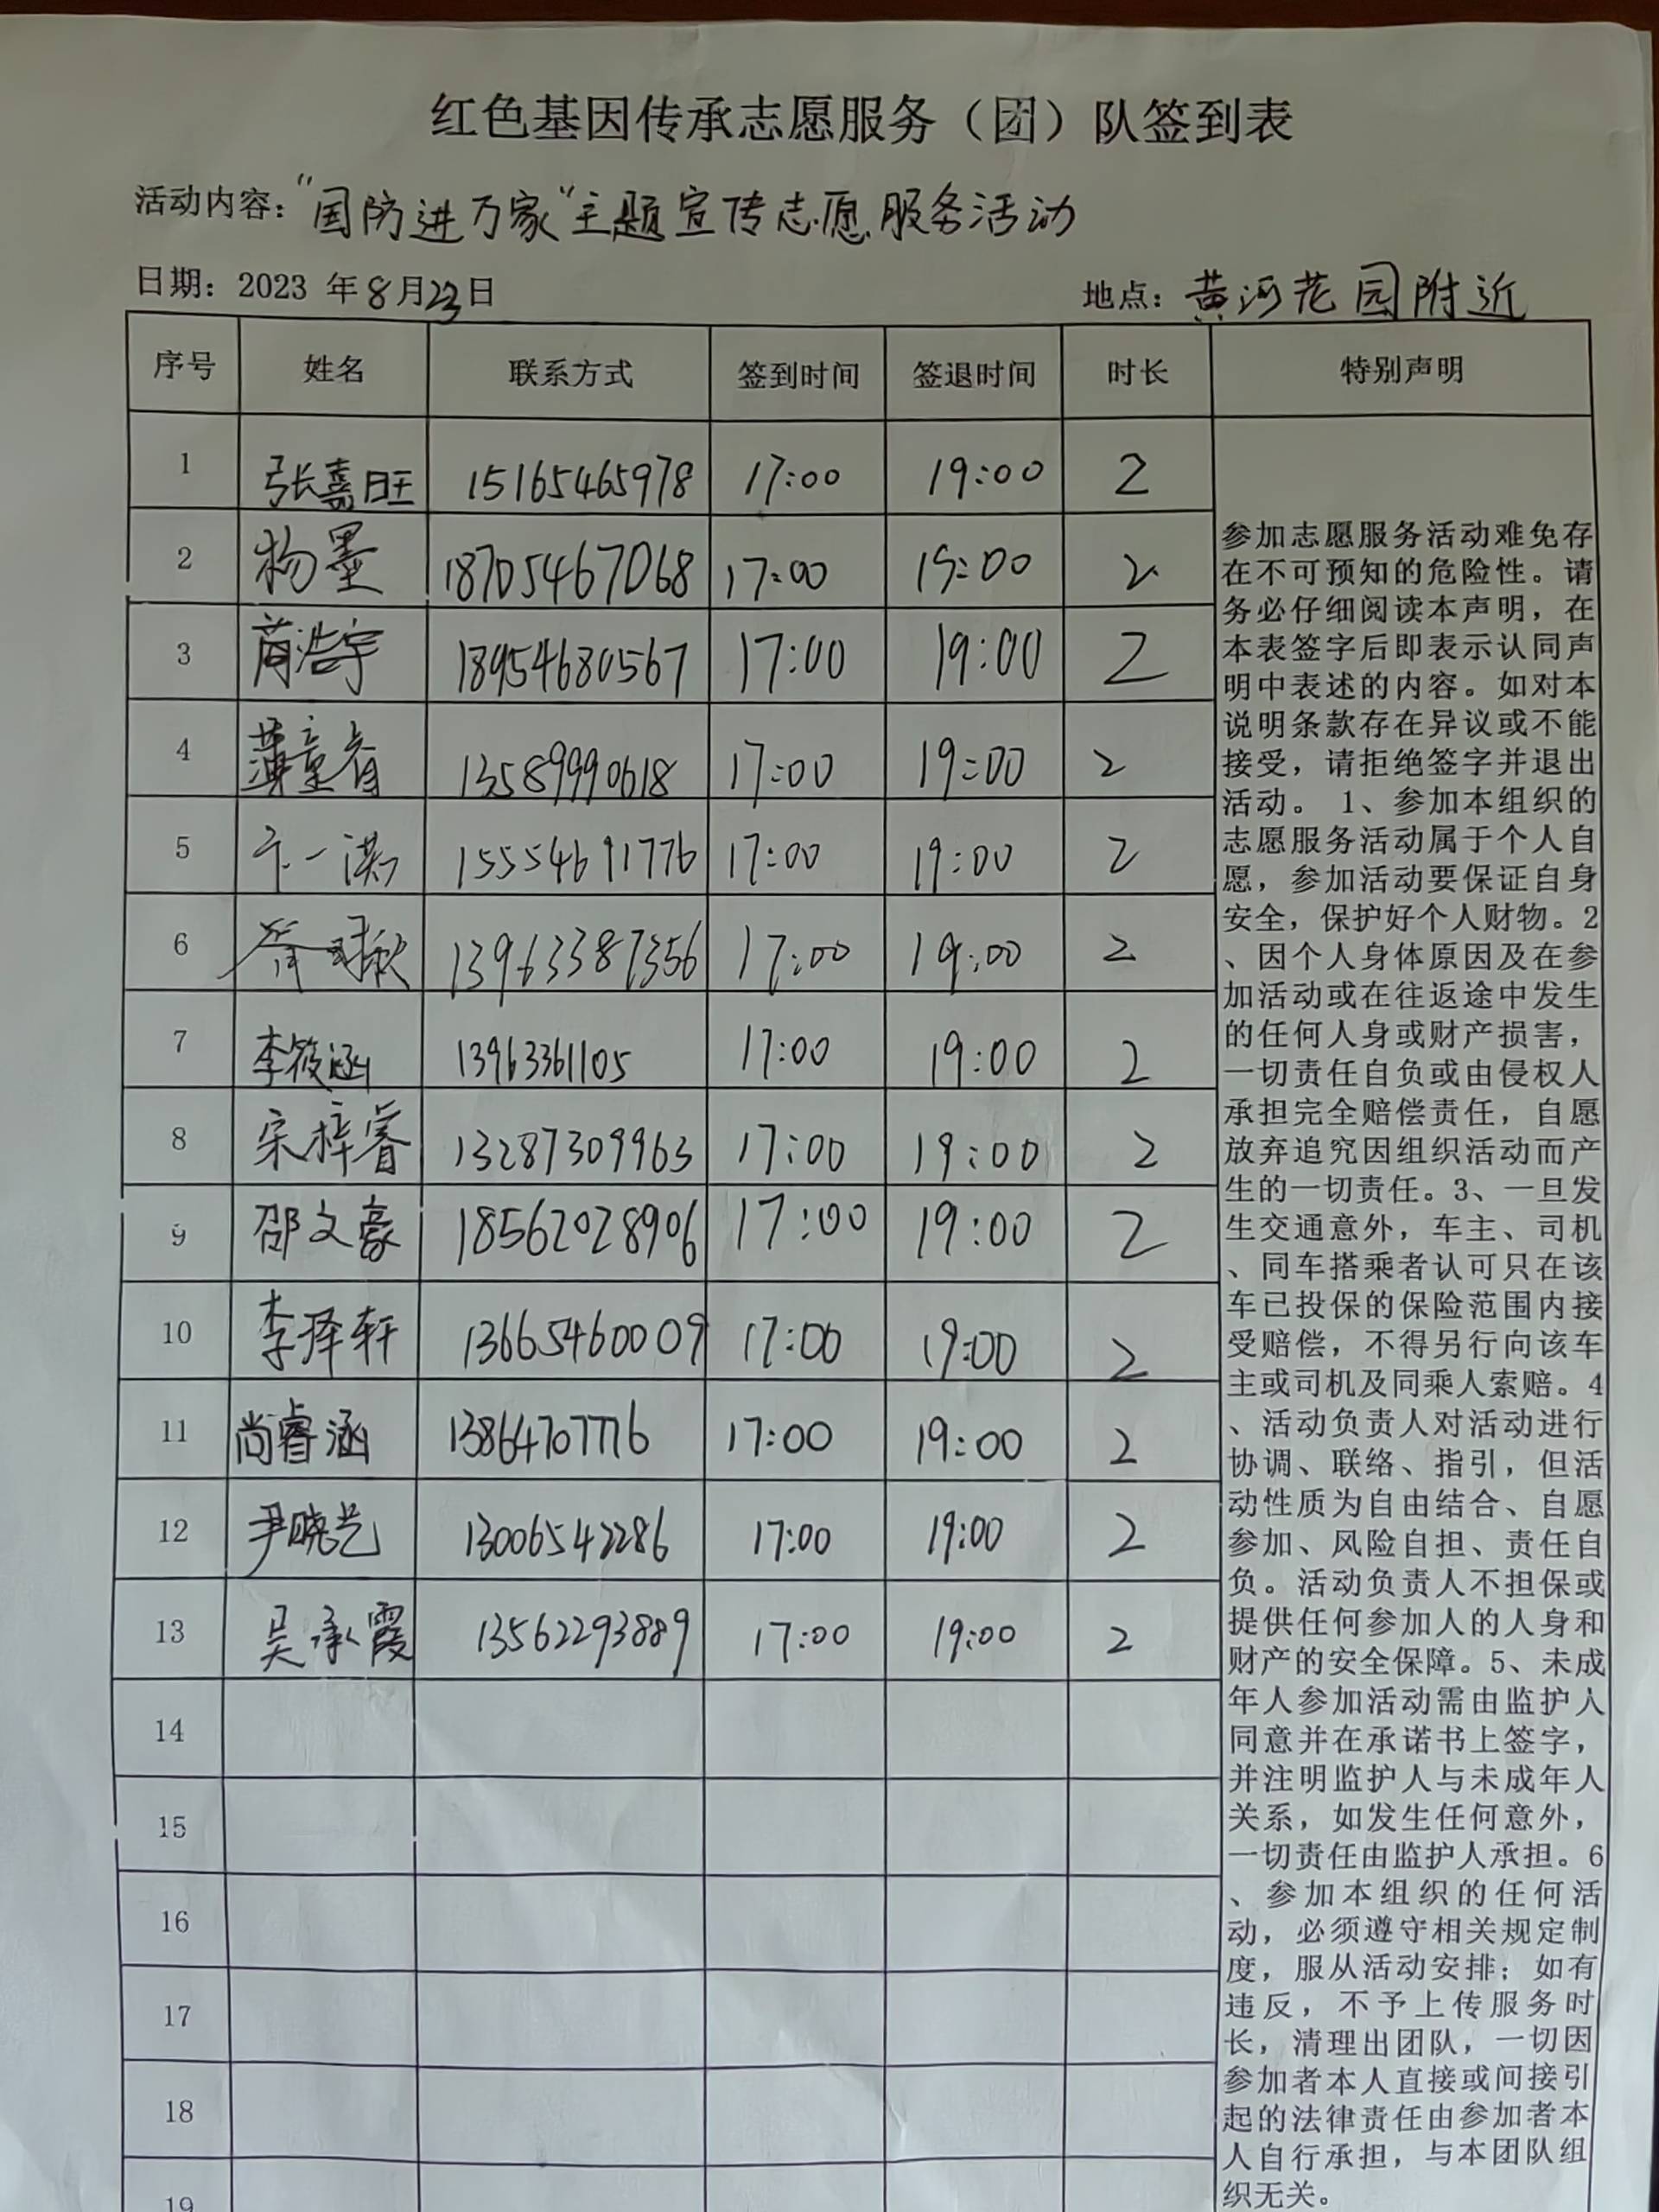 红色基因传承志愿服务（团）队签到表
活动内容：“国防进万家”主题宣传志愿服务活动
日期：2023 年8月23日 地点：黄河花园附近
序号 姓名 联系方式 签到时间 签退时间 时长 特别声明
1 张嘉旺 15165465978 17:00 19:00 2
2 杨墨 18705467068 17:00 19:00 2
3 浩宇 18954680567 17:00 19:00 2
4 薄童 13589990618 17:00 19:00 2
5 一 15554691776 17:00 19:00 2
6 13963387356 17:00 19:00 2
7 李筱涵 13963361105 17:00 19:00 2
8 宋梓睿 13287309963 17:00 19:00 2
9 邵文豪 18562028906 17:00 19:00 2
10 李泽轩 13665460009 17:00 19:00 2
11 尚睿涵 13864707776 17:00 19:00 2
12 尹晓艺 13006542286 17:00 19:00 2
13 吴承霞 13562293889 17:00 19:00 2
14
15
16
17
18
19
参加志愿服务活动难免存
在不可预知的危险性。请
务必仔细阅读本声明，在
本表签字后即表示认同声
明中表述的内容。如对本
说明条款存在异议或不能
接受，请拒绝签字并退出
活动。 1、参加本组织的
志愿服务活动属于个人自
愿，参加活动要保证自身
安全，保护好个人财物。2
、因个人身体原因及在参
加活动或在往返途中发生
的任何人身或财产损害，
一切责任自负或由侵权人
承担完全赔偿责任，自愿
放弃追究因组织活动而产
生的一切责任。3、一旦发
生交通意外，车主、司机
、同车搭乘者认可只在该
车已投保的保险范围内接
受赔偿，不得另行向该车
主或司机及同乘人索赔。4
、活动负责人对活动进行
协调、联络、指引，但活
动性质为自由结合、自愿
参加、风险自担、责任自
负。活动负责人不担保或
提供任何参加人的人身和
财产的安全保障。5、未成
年人参加活动需由监护人
同意并在承诺书上签字，
并注明监护人与未成年人
关系，如发生任何意外，
一切责任由监护人承担。6
、参加本组织的任何活
动，必须遵守相关规定制
度，服从活动安排；如有
违反，不予上传服务时
长，清理出团队，一切因
参加者本人直接或间接引
起的法律责任由参加者本
人自行承担，与本团队组
织无关。